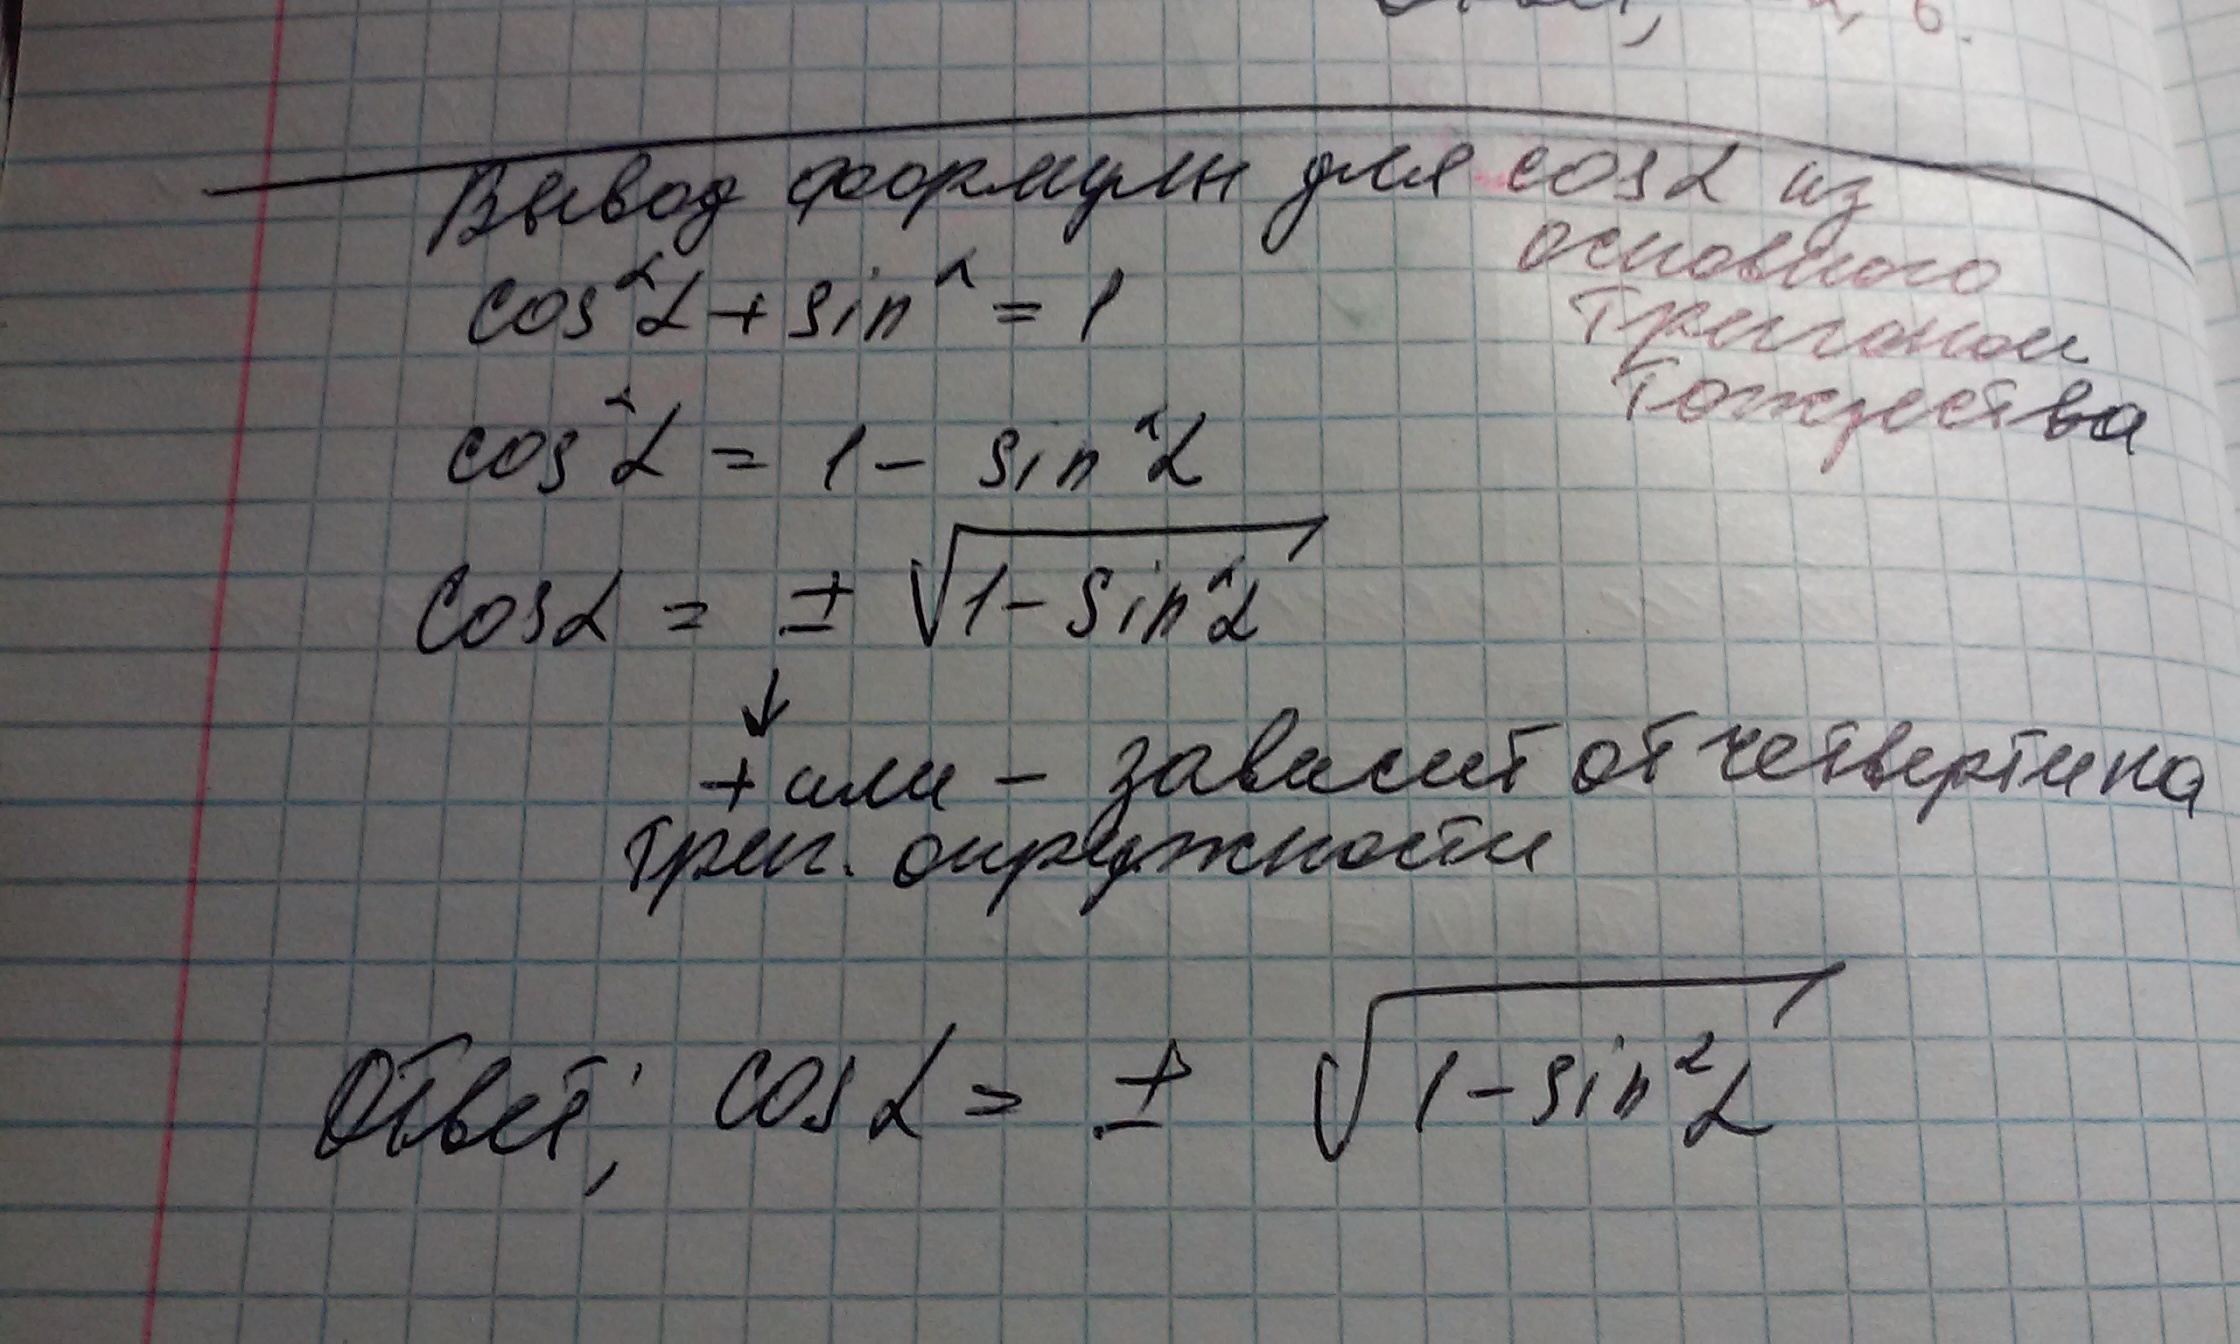 Вывод формулы для cosα из
основного
тригоном
тождества
cos²α + sin² = 1
cos²α = 1 - sin²α
cosα = ± √1-sin²α
↓
+ или - зависит от четверти на
триг. окружности
Ответ; cosα = ± √1-sin²α